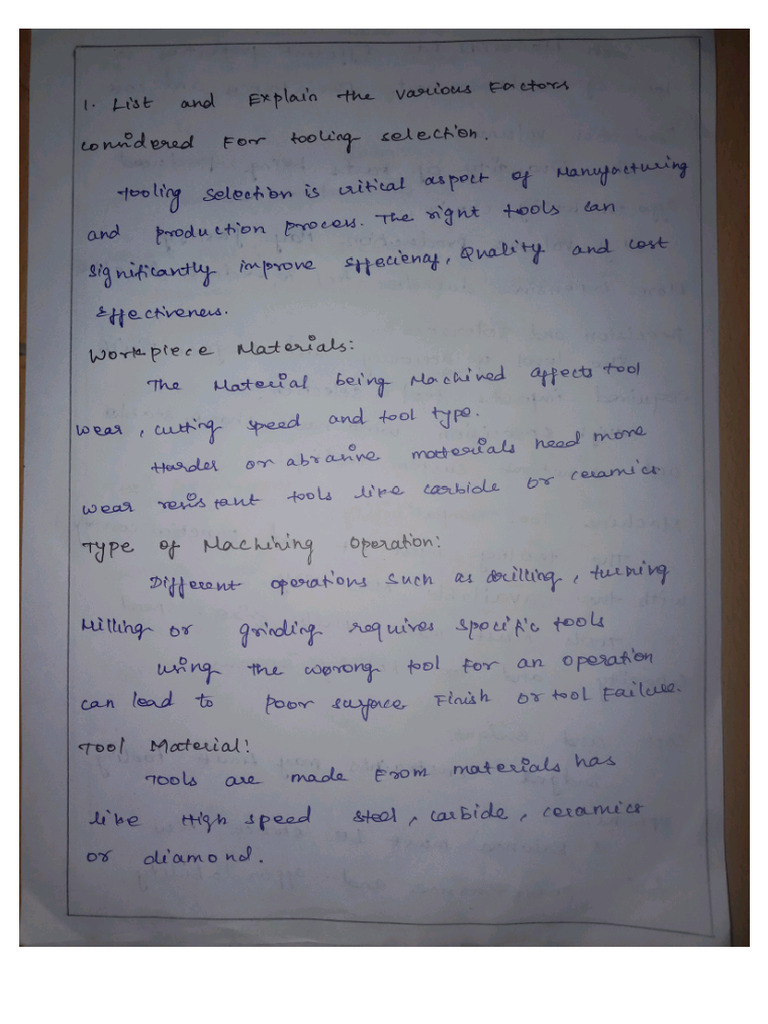 1. List and Explain the various Factors
considered For tooling selection.
Tooling selection is critical aspect of Manufacturing
and production process. The right tools can
significantly improve effeciency, Quality and cost
effectiveness.
Workpiece Materials:
The Material being Machined affects tool
wear, cutting speed and tool type.
Harder or abrasive materials need more
wear resistant tools like carbide or ceramics
Type of Machining Operation:
Different operations such as drilling, turning
Milling or grinding requires specific tools
using the worong tool for an operation
can lead to poor surface Finish or tool Failure.
Tool Material:
Tools are made From materials has
like High speed steel, carbide, ceramics
or diamond.